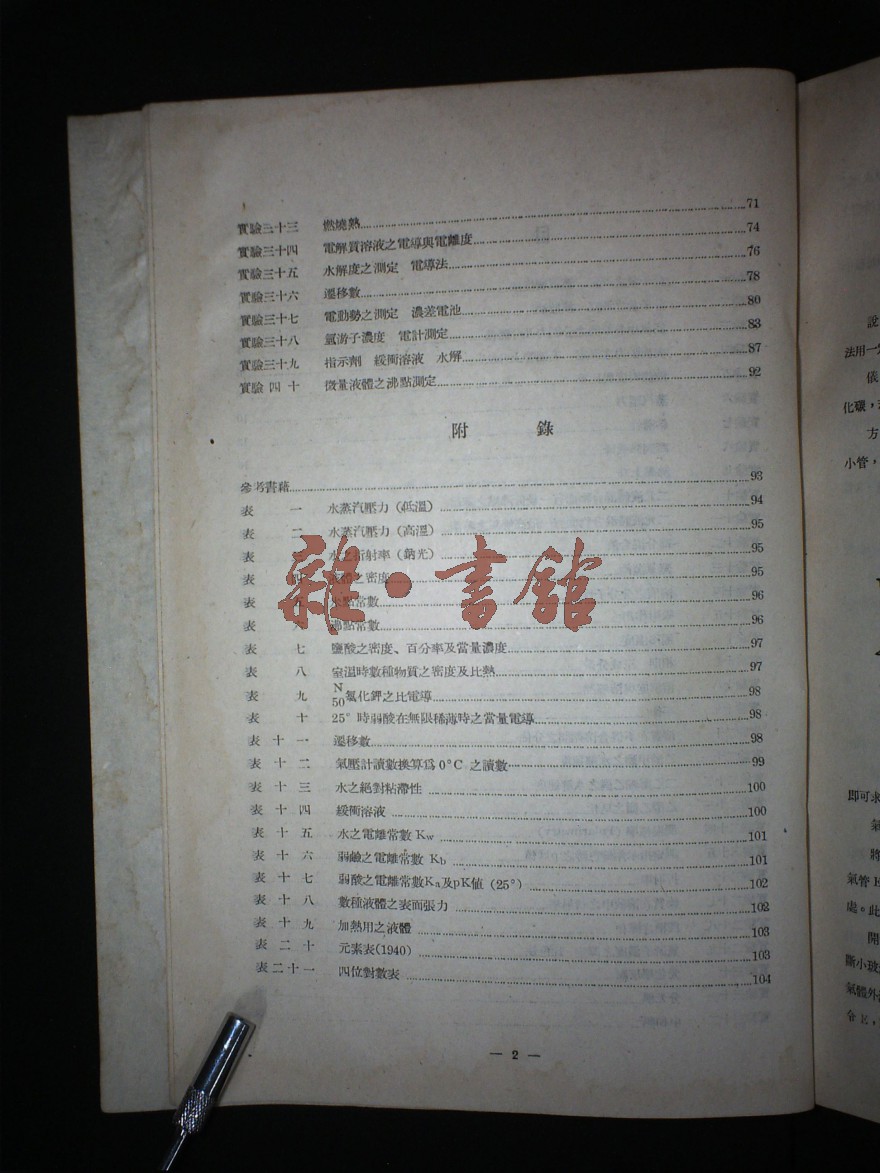 實驗三十三 燃燒熱 71
實驗三十四 電解質溶液之電導與電離度 74
實驗三十五 水解度之測定 電導法 76
實驗三十六 遷移數 78
實驗三十七 電動勢之測定 濃差電池 80
實驗三十八 氫游子濃度 電計測定 83
實驗三十九 指示劑 緩衝溶液 水解 87
實驗四十 微量液體之沸點測定 92
附錄
參考書籍 93
表一 水蒸汽壓力(低溫) 94
表二 水蒸汽壓力(高溫) 95
表三 水之折射率(鈉光) 95
表四 液體之密度 95
表五 冰點常數 96
表六 沸點常數 96
表七 鹽酸之密度、百分率及當量濃度 97
表八 室溫時數種物質之密度及比熱 97
表九 N/50氯化鉀之比電導 98
表十 25°時弱酸在無限稀薄時之當量電導 98
表十一 遷移數 98
表十二 氣壓計讀數換算爲0°C之讀數 99
表十三 水之絕對粘滯性 100
表十四 緩衝溶液 100
表十五 水之電離常數Kw 101
表十六 弱鹼之電離常數Kb 101
表十七 弱酸之電離常數Ka及pK値(25°) 102
表十八 數種液體之表面張力 102
表十九 加熱用之液體 103
表二十 元素表(1940) 103
表二十一 四位對數表 104
— 2 —
雜·書館
說
法用一
儀
化碳,
方
小管,
即可求
氣
將
氣管
處。此
開
斷小玻
氣體外
令E,